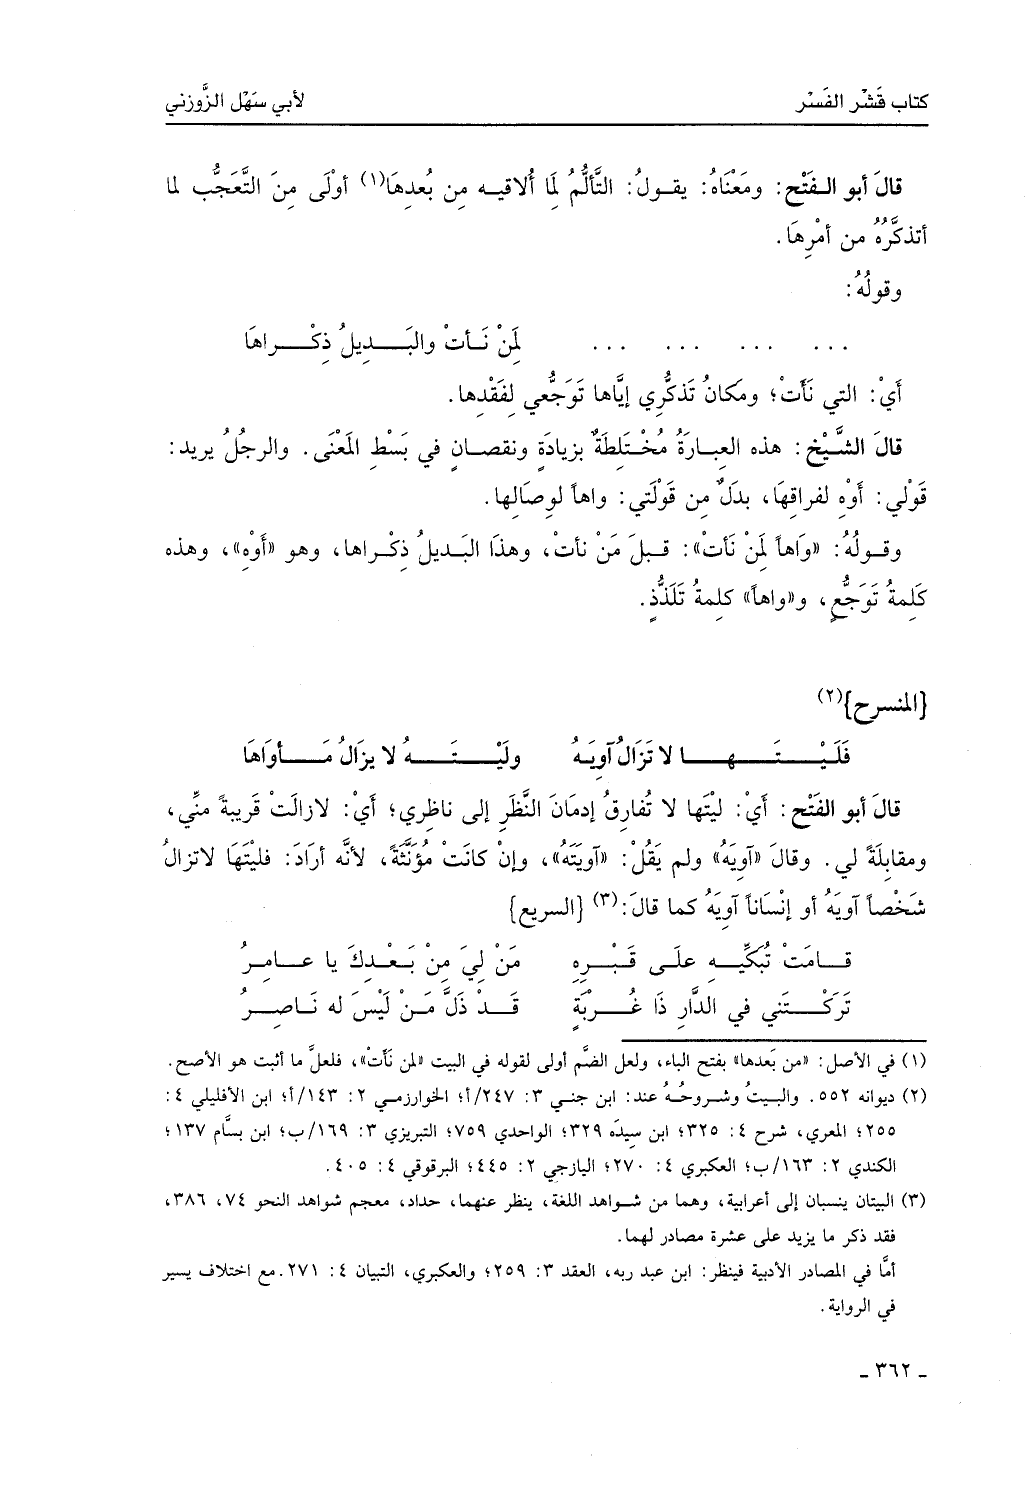 كتاب قَشْر الفَسْر لأبي سَهْل الزَّوزني
قالَ أبو الفَتْح: ومَعْنَاهُ: يقولُ: التَّألُّمُ لِمَا أُلاقيه مِن بُعدِهَا(١) أوْلَى مِنَ التَّعَجُّب لما
أتذكَّرُهُ من أمْرِهَا.
وقولُهُ:
... ... ... ... لِمَنْ نَأتْ والبَدِيلُ ذِكْراهَا
أيْ: التي نَأَتْ؛ ومكانُ تَذكُّرِي إيَّاها تَوَجُّعي لِفَقْدِها.
قالَ الشَّيْخ: هذه العِبارَةُ مُخْتَلِطَةٌ بزيادَةٍ ونقصانٍ في بَسْطِ المَعْنَى. والرجُلُ يريد:
قَوْلي: أوْهِ لفراقِهَا، بدَلٌ مِن قَوْلَتي: واهاً لوِصَالِها.
وقولُهُ: «وَاهاً لِمَنْ نَأتْ»: قبلَ مَنْ نأتْ، وهذَا البَديلُ ذِكْراها، وهو «أَوْهِ»، وهذه
كَلِمةُ تَوَجُّعٍ، و«واهاً» كلِمةُ تَلَذُّذٍ.
{المنسرح}(٢)
فَلَيْتَهَا لا تَزَالُ آوِيَهُ ولَيْتَهُ لا يزَالُ مَأوَاهَا
قالَ أبو الفَتْح: أيْ: ليْتَها لا تُفارِقُ إدمَانَ النَّظَرِ إلى ناظِري؛ أيْ: لازالَتْ قَريبةً منِّي،
ومقابلَةً لي. وقالَ «آوِيَهُ» ولم يَقُلْ: «آوِيَتَهُ»، وإنْ كانَتْ مُؤنَّثَةً، لأنَّه أرَادَ: فليْتَهَا لاتزالُ
شَخْصاً آوِيَهُ أو إنْسَاناً آوِيَهُ كما قالَ:(٣) {السريع}
قامَتْ تُبَكِّيهِ علَى قَبْرِهِ مَنْ لِيَ مِنْ بَعْدِكَ يا عامِرُ
تَرَكْتَني في الدَّارِ ذَا غُرْبَةٍ قَدْ ذَلَّ مَنْ لَيْسَ له نَاصِرُ
(١) في الأصل: «من بَعدها» بفتح الباء، ولعل الضَّم أولى لقوله في البيت «لمن نَأتْ»، فلعلَّ ما أثبت هو الأصح.
(٢) ديوانه ٥٥٢. والبيتُ وشروحُهُ عند: ابن جني ٣: ٢٤٧/أ؛ الخوارزمي ٢: ١٤٣/أ؛ ابن الأفليلي ٤:
٢٥٥؛ المعري، شرح ٤: ٣٢٥؛ ابن سِيدَه ٣٢٩؛ الواحدي ٧٥٩؛ التبريزي ٣: ١٦٩/ب؛ ابن بسَّام ١٣٧؛
الكندي ٢: ١٦٣/ب؛ العكبري ٤: ٢٧٠؛ اليازجي ٢: ٤٤٥؛ البرقوقي ٤: ٤٠٥.
(٣) البيتان ينسبان إلى أعرابية، وهما من شواهد اللغة، ينظر عنهما، حداد، معجم شواهد النحو ٧٤، ٣٨٦،
فقد ذكر ما يزيد على عشرة مصادر لهما.
أمَّا في المصادر الأدبية فينظر: ابن عبد ربه، العقد ٣: ٢٥٩؛ والعكبري، التبيان ٤: ٢٧١. مع اختلاف يسير
في الرواية.
ـ ٣٦٢ ـ